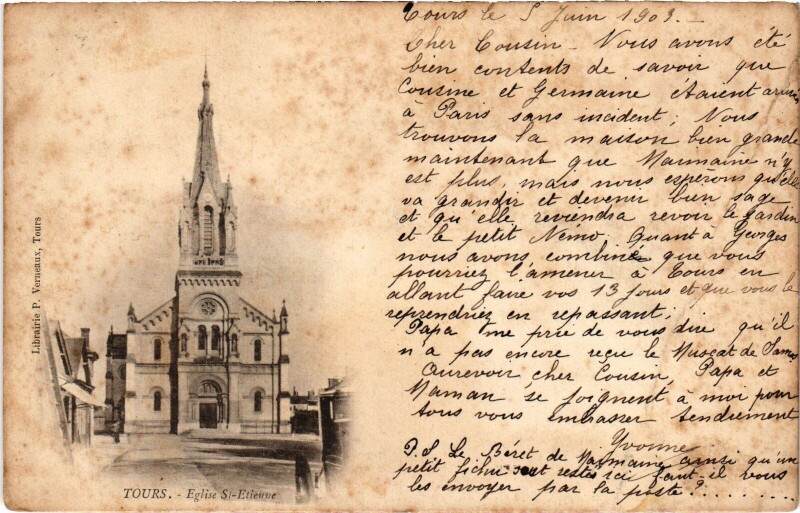 Tours le 5 Juin 1903.-
Cher Cousin - Nous avons été
bien contents de savoir que
Cousine et Germaine étaient arrivé
à Paris sans incident; Nous
trouvons la maison bien grande
maintenant que Maumaine n'y
est plus, mais nous espérons qu'elle
va grandir et devenir bien sage
et qu'elle reviendra revoir le jardin
et le petit Némo. Quant à Georges
nous avons combiné que vous
pourriez l'amener à Tours en
allant faire vos 13 jours et que vous le
reprendriez en repassant;
Papa me prie de vous dire qu'il
n'a pas encore reçu le Muscat de Samos
Aurevoir cher Cousin, Papa et
Maman se joignent à moi pour
tous vous embrasser tendrement
Yvonne
P.S Le Béret de Maumaine ainsi qu'un
petit fichu sont restés ici faut-il vous
les envoyer par la poste?........
Librairie P. Verneaux, Tours
TOURS. - Eglise St-Etienne